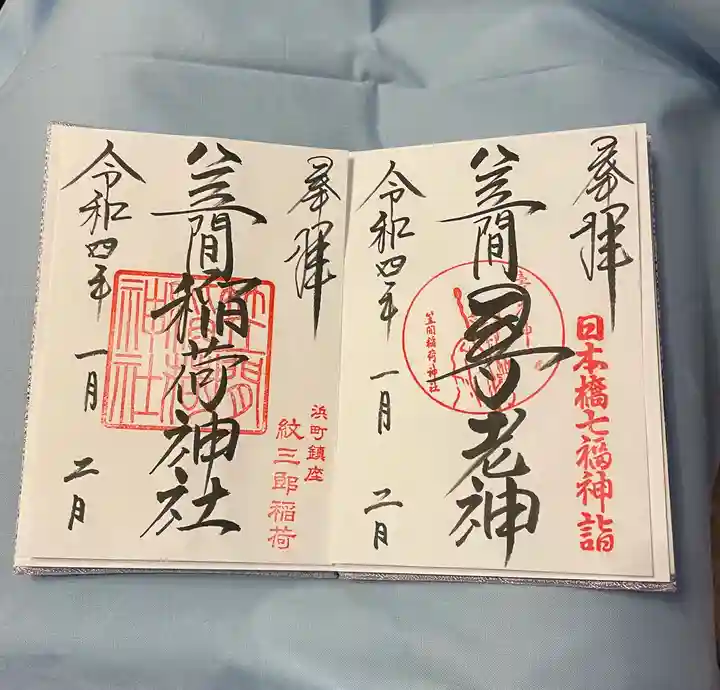 奉拝
日本橋七福神詣
笠間寿老神
笠間稲荷神社
令和四年 一月 二日
奉拝
浜町鎮座
紋三郎稲荷
笠間稲荷神社
令和四年 一月 二日